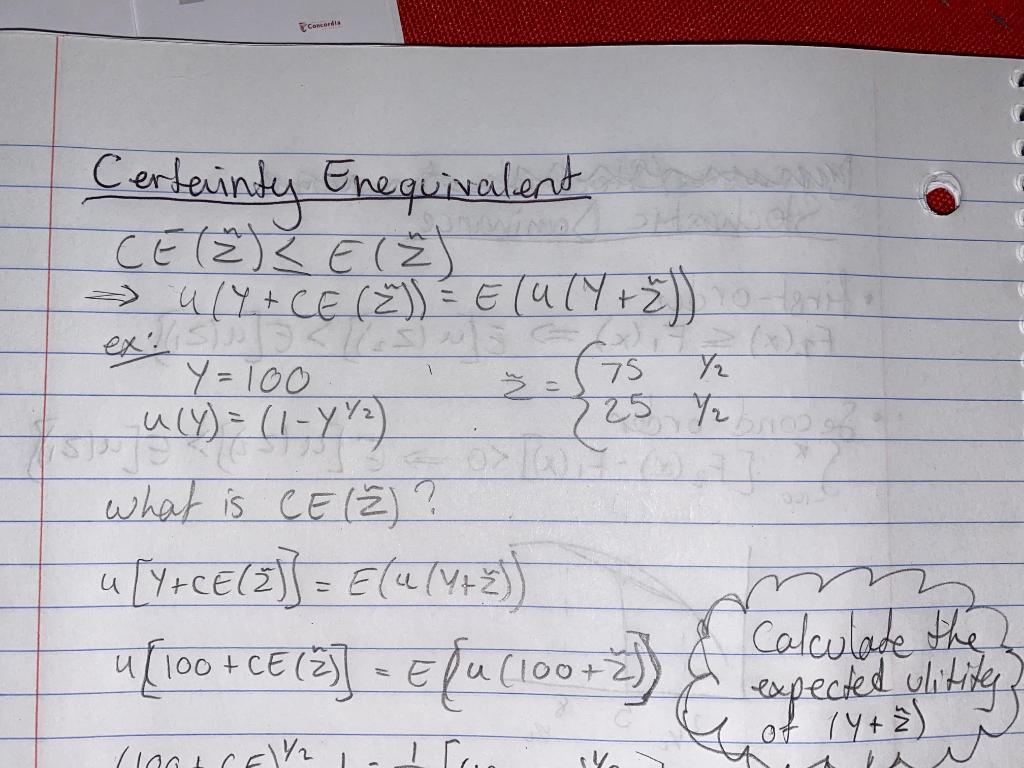 Concordia
Certainty Enequivalent
CE(z̃) ≤ E(z̃)
⇒ u(Y+CE(z̃)) = E(u(Y+z̃))
ex:
Y=100 z̃ = { 75 1/2
u(Y) = (1-Y^1/2) 25 1/2
what is CE(z̃)?
u[Y+CE(z̃)] = E(u(Y+z̃))
u[100+CE(z̃)] = E[u(100+z̃)]
Calculate the
expected ulitity
of (Y+z̃)